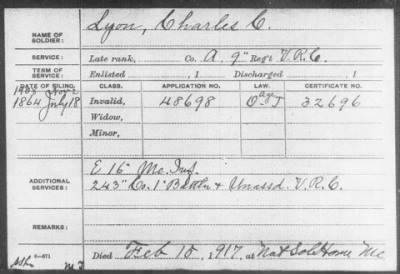 NAME OF SOLDIER: Lyon, Charles C.
SERVICE: Late rank, Co. A. 9" Reg't V.R.C.
TERM OF SERVICE: Enlisted , 1 Discharged , 1
DATE OF FILING. CLASS. APPLICATION NO. LAW. CERTIFICATE NO.
Nov 2
1864 July 18 Invalid, 48698 32696
Widow,
Minor,
E 16" Me. Inf.
ADDITIONAL SERVICES: 243" Co. 1" Batt'n & Unassd. V.R.C.
REMARKS:
Died Feb 10, 1917, at Nat Sol Home Me
3—071